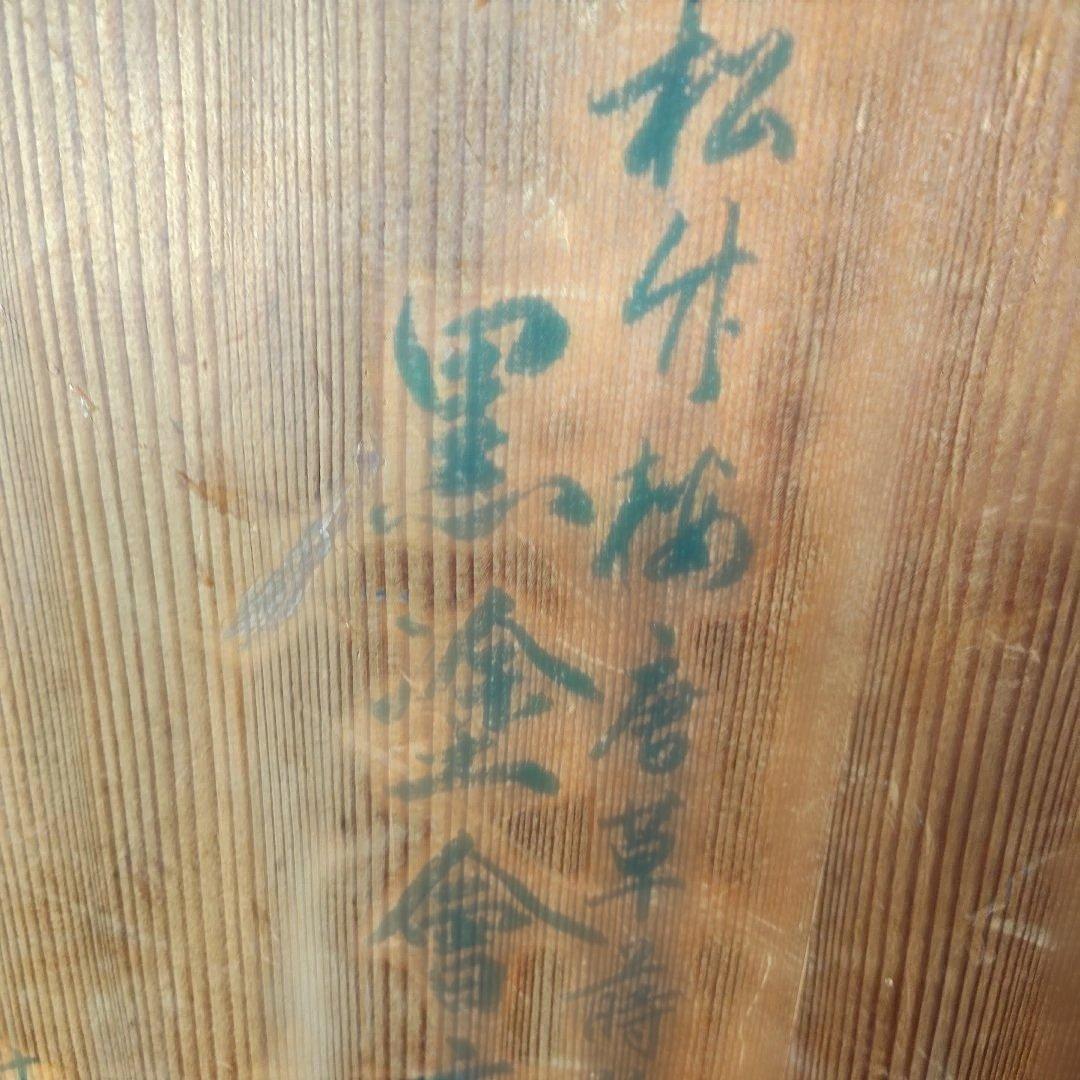 松竹梅唐草蒔
黒塗會